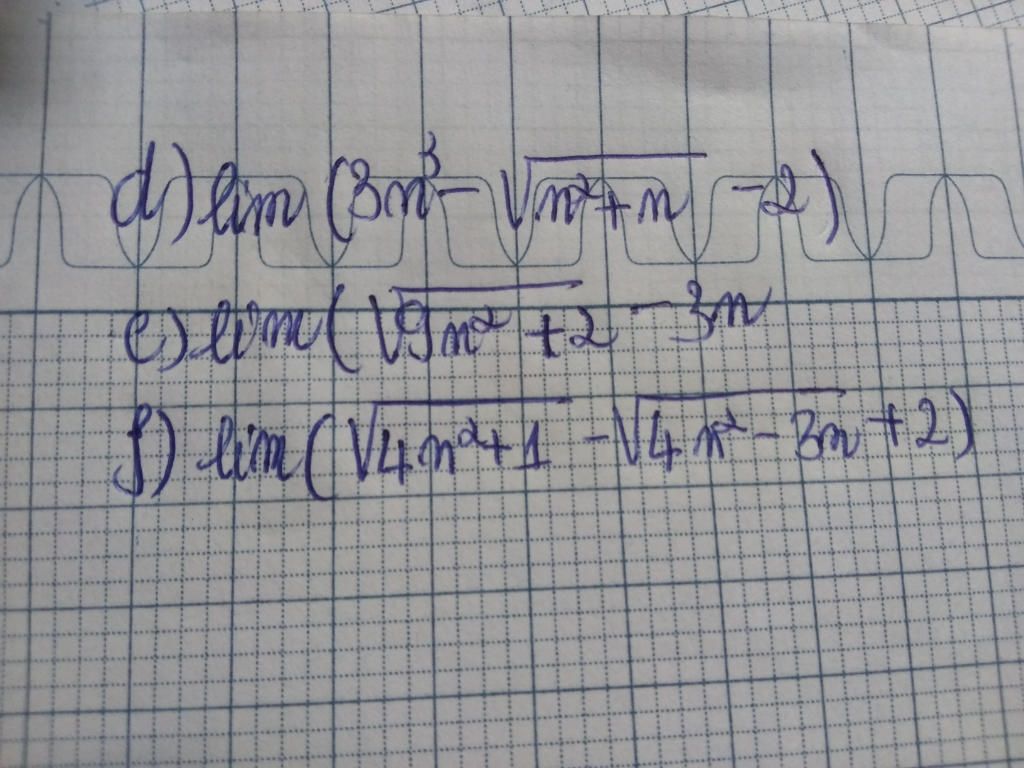 d) lim (3n³ - √(n²+n) - 2)
e) lim (√(9n² + 2) - 3n
f) lim (√(4n²+1) - √(4n² - 3n) + 2)